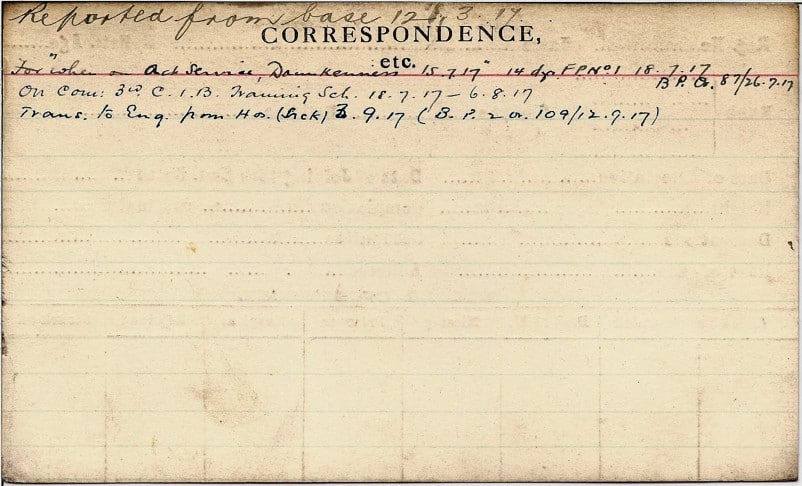 Reported from base 12. 3. 17
CORRESPONDENCE,
etc.
For "when on Act Service, Drunkenness 15.7.17" 14 dys FPNo1 18.7.17
B P. O. 87/26.7.17
On Com: 3rd C. I. B. Training Sch. 18.7.17 – 6.8.17
Trans. to Eng. from Hos. (Sick) 3.9.17 (B. P. 2 O. 109/12.9.17)